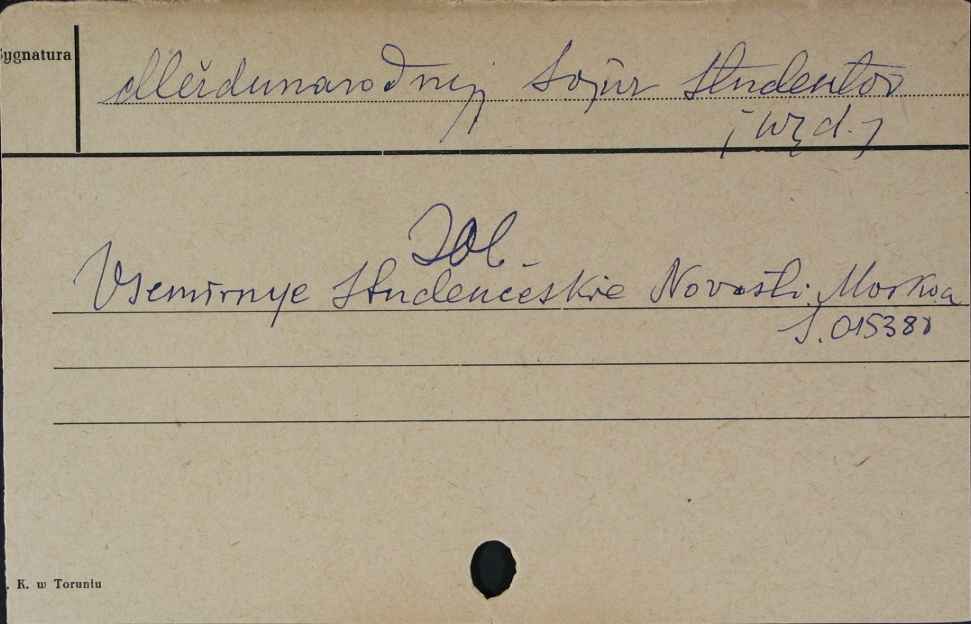 Sygnatura
Meždunarodnyj Sojuz Studentov
[wyd.]
Zob.
Vsemirnye Studenčeskie Novosti. Moskva
S. 015388
. K. w Toruniu